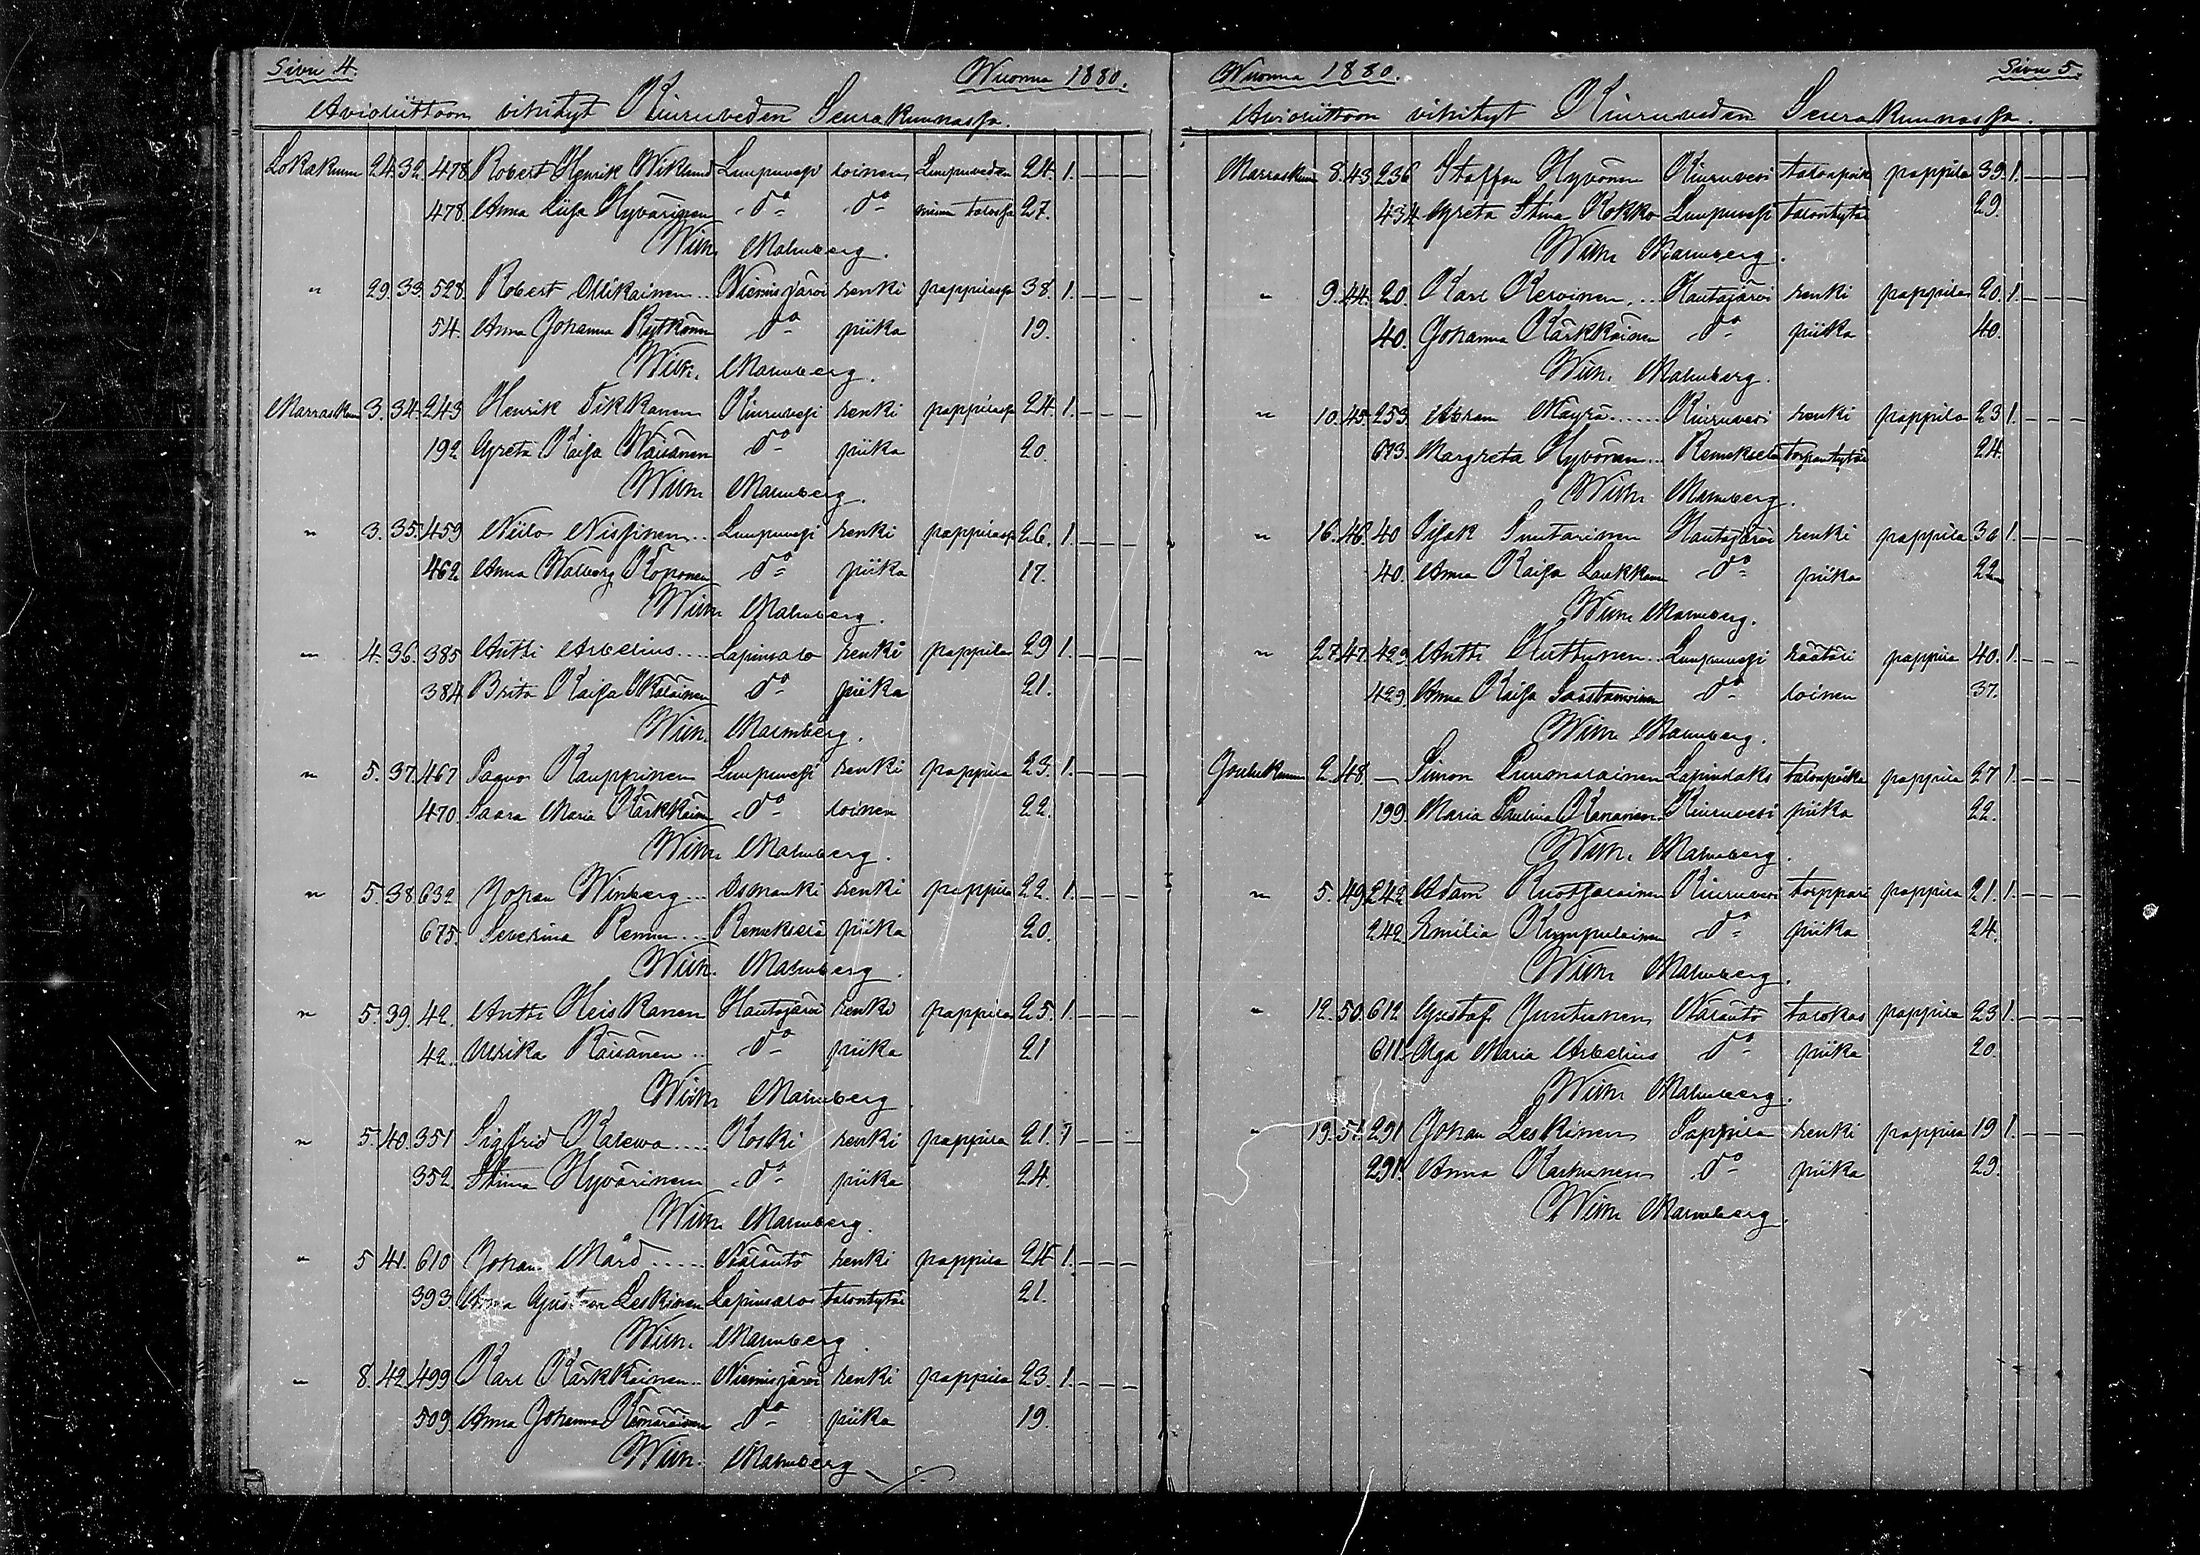 Sivu 4. Wuonna 1880.
Avioliittoon vihityt Kiuruveden Seurakunnassa.
Lokakuun 24. 32. 478. Robert Henrik Wiklund Luupuvesi loinen Luupuveden 24. 1. – – –
478. Anna Liisa Hyvärinen d:o d:o talossa 27.
Wilh. Malmberg.
" 29. 33. 528. Robert Ollikainen .. Niemisjärvi renki pappilassa 38. 1. – – –
54. Anna Johanna Rytkönen d:o piika 19.
Wilh. Malmberg.
Marraskuun 3. 34. 243 Henrik Tikkanen Kiuruvesi renki pappilassa 24. 1. – – –
192 Greta Kaisa Väisänen d:o piika 20.
Wilh. Malmberg.
" 3. 35. 459 Niilo Nissinen .. Luupuvesi renki pappilassa 26. 1. – – –
462. Anna Walborg Koponen d:o piika 17.
Wilh. Malmberg.
" 4. 36. 385 Antti Arbelius .... Lapinsalo renki pappila 29 1. – – –
384 Brita Kaisa d:o piika 21.
Wilh. Malmberg.
" 5. 37. 467 Paavo Kauppinen Luupuvesi renki pappila 23. 1. – – –
470. Saara Maria Kärkkäinen d:o loinen 22.
Wilh. Malmberg.
" 5. 38. 632. Johan Winberg ... Osmanki renki pappila 22. 1. – – –
675. Severina Remes ... Remeskylä piika 20.
Wilh. Malmberg.
" 5. 39. 42. Antti Heiskanen Hautajärvi renki pappila 25. 1. – – –
42. Ulrika Räisänen .. d:o piika 21
Wilh. Malmberg.
" 5. 40. 351 Sigfrid Kalewa ..... Koski renki pappila 21. 1 – – –
352. Stina Hyvärinen d:o piika 24.
Wilh. Malmberg.
" 5 41. 610 Johan Mård ..... Näläntö renki pappila 24. 1. – – –
393. Anna Gustava Leskinen Lapinsalo talontytär 21.
Wilh. Malmberg
" 8. 42. 499 Karl Kärkkäinen .. Niemisjärvi renki pappila 23. 1. – – –
509. Anna Johanna Kämäräinen d:o piika 19.
Wilh. Malmberg
Wuonna 1880. Sivu 5.
Avioliittoon vihityt Kiuruveden Seurakunnassa.
Marraskuun 8. 43. 236 Staffan Hyvönen Kiuruvesi talonpoika pappila 39. 1. – – –
434 Greta Stina Kokko Luupuvesi talontytär 29.
Wilh. Malmberg.
" 9. 44. 20. Karl Kervinen ... Hautajärvi renki pappila 20. 1. – – –
40. Johanna Kärkkäinen d:o piika 40.
Wilh. Malmberg.
" 10. 45. 253. Abram Mäyrä ...... Kiuruvesi renki pappila 23 1. – – –
673. Margreta Hyvönen .. Remeskylä torpantytär 24.
Wilh. Malmberg.
" 16. 46. 40 Isak Suutarinen Hautajärvi renki pappila 30 1. – – –
40. Anna Kaisa Laukkanen d:o piika 22
Wilh. Malmberg.
" 27. 47. 429 Antti Huttunen .. Luupuvesi räätäli pappila 40. 1. – – –
429. Anna Kaisa Saastamoinen d:o loinen 37.
Wilh. Malmberg.
Joulukuun 2. 48. – Simon Luomalainen Lapinlaks talonpoika pappila 27 1. – – –
199. Maria Paulina Kananen Kiuruvesi piika 22.
Wilh. Malmberg.
" 5. 49. 242 Adam Ruotsalainen Kiuruvesi torppari pappila 21. 1. – – –
242 Emilia Kumpulainen d:o piika 24.
Wilh. Malmberg.
" 12. 50. 612 Gustaf Juntunen Näläntö talokas pappila 23 1. – – –
611. Olga Maria Arbelius d:o piika 20.
Wilh. Malmberg.
" 19. 51. 291 Johan Leskinen Pappila renki pappila 19 1. – – –
291. Anna Karhunen d:o piika 29.
Wilh. Malmberg.